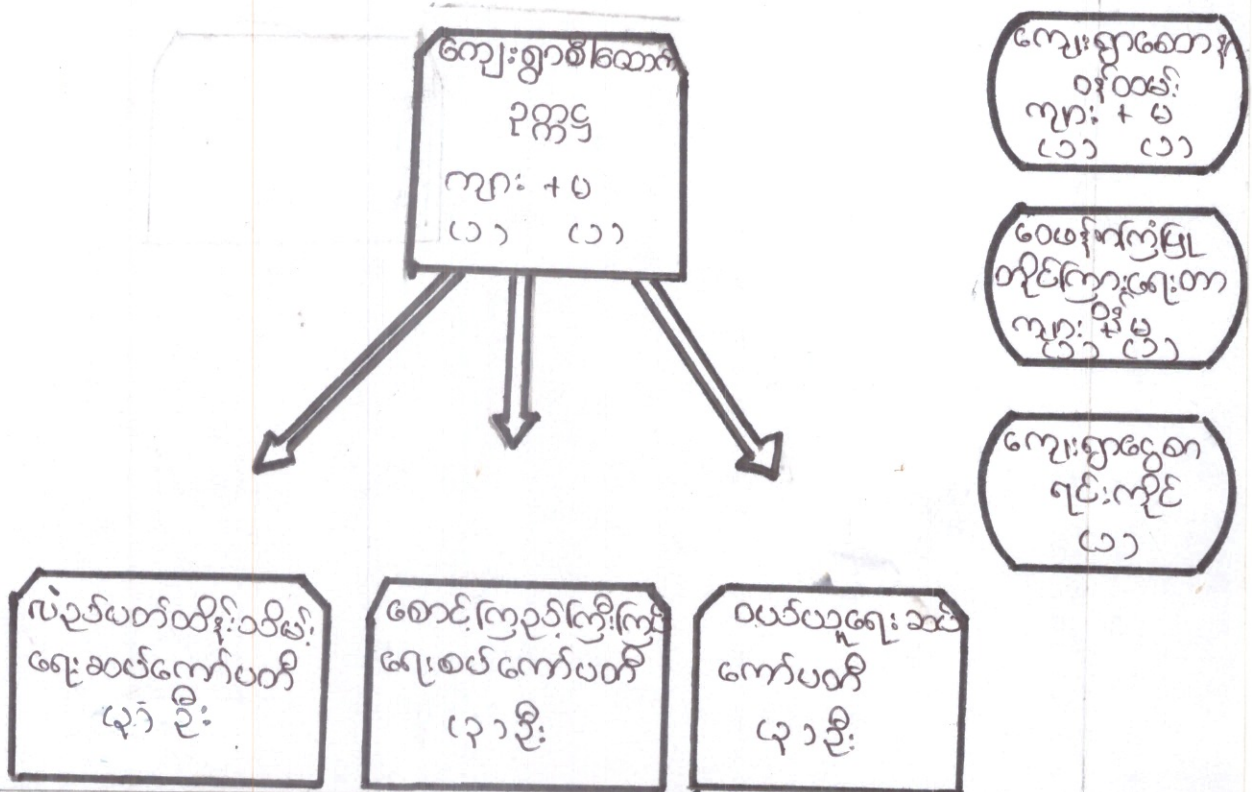 ကျေးရွာစီ/ထောက်
ဥက္ကဋ္ဌ
ကျား + မ
(၁) (၁)
ကျေးရွာစေတနာ့
ဝန်ထမ်း
ကျား + မ
(၁) (၁)
ဝေဖန်အကြံပြု
တိုင်ကြားရေးတာ
ဝန်
ကျား + မ
(၁) (၁)
ကျေးရွာငွေစာ
ရင်းကိုင်
(၁)
လဲဉ်ပတ်ထိန်းသိမ်း
ရေးဆပ်ကော်မတီ
(၃) ဦး
စောင့်ကြည့်ကြီးကြပ်
ရေးစပ်ကော်မတီ
(၃) ဦး
ဝယ်ယူရေးဆပ်
ကော်မတီ
(၃) ဦး